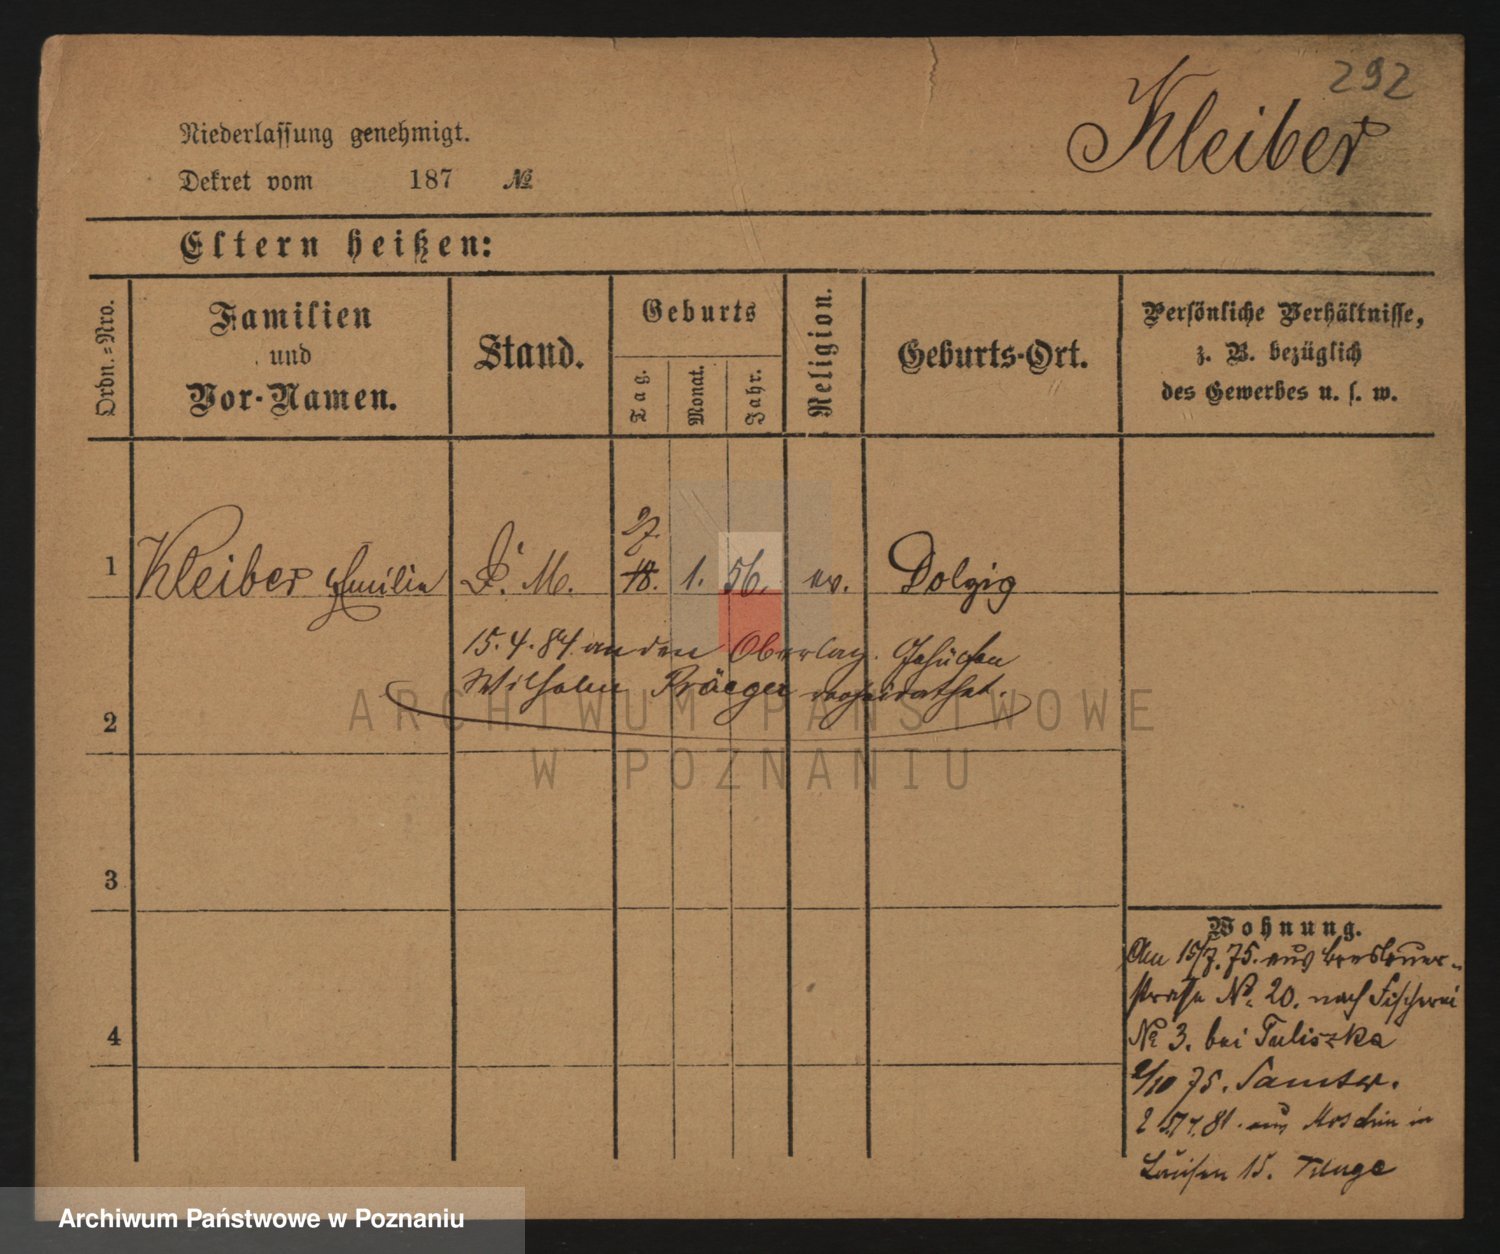 292
Kleiber
Niederlassung genehmigt.
Dekret vom 187 №
Eltern heißen:
Ordn.-Nro.
Familien
und
Vor-Namen.
Stand.
Geburts
Tag.
Monat.
Jahr.
Religion.
Geburts-Ort.
Persönliche Verhältnisse,
z. B. bezüglich
des Gewerbes u. s. w.
27.
1 Kleiber Emilie D. M. 18. 1. 56. ev. Dolzig
15.4.84. an den
Wilhelm Präger verheirathet.
2
3
4
Wohnung.
Am 15/7.75. aus Breslauer-
straße No. 20. nach Fischerei
No 3. bei Tuliszka
2/10 75. Samter.
81. aus Moschin in
15. Kluge
ARCHIWUM PAŃSTWOWE
W POZNANIU
Archiwum Państwowe w Poznaniu